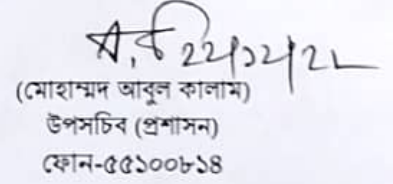 ২২/১২/২২
(মোহাম্মদ আবুল কালাম)
উপসচিব (প্রশাসন)
ফোন-৫৫১০০৮১৪